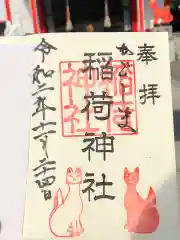 奉拝
稲荷神社
稲荷
神社
令和二年十一月二十四日